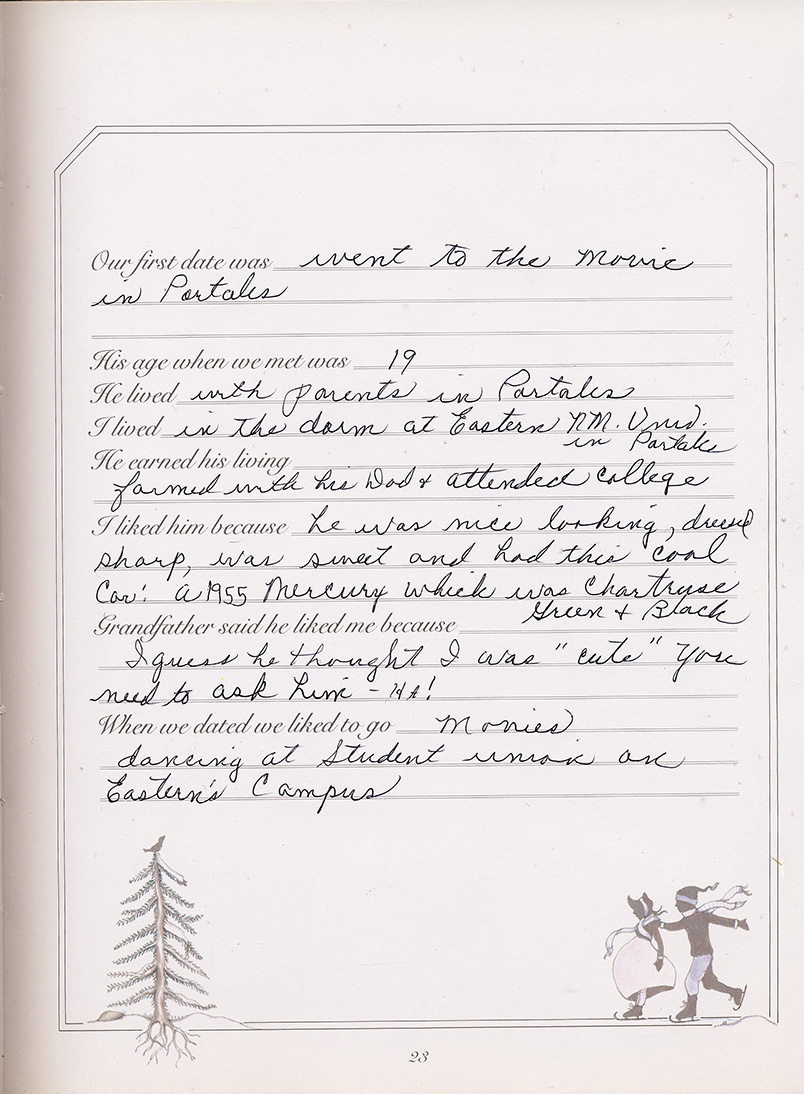 Our first date was went to the movie
in Portales
His age when we met was 19
He lived with parents in Portales
I lived in the dorm at Eastern N.M. Univ.
in Portales
He earned his living
farmed with his Dad & attended college
I liked him because he was nice looking, dressed
sharp, was sweet and had this cool
Car! A 1955 Mercury which was Chartruse
Green & Black
Grandfather said he liked me because
I guess he thought I was "cute" You
need to ask him - HA!
When we dated we liked to go Movies
dancing at Student union on
Eastern's Campus
23